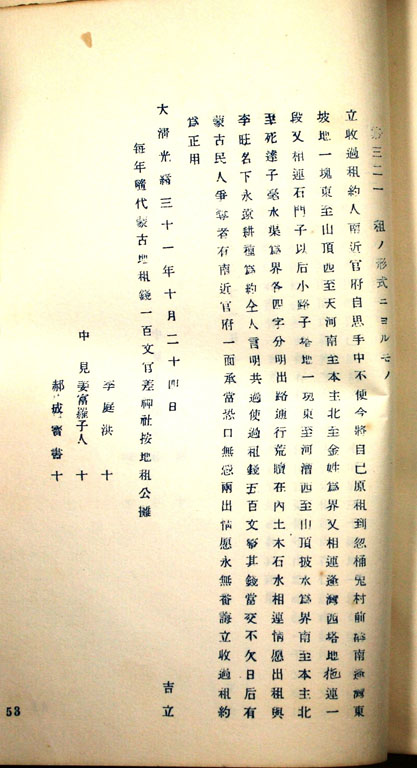 三二一 租ノ形式ニヨルモノ
立收過租約人南近官府自思手中不便今將自己原租到忽桶兎村前 南逢灣東
坡地一塊東至山頂西至天河南至本主北至金姓爲界又相連逢灣西塔地拖連一
段又相連石門子以后小路子塔地一塊東至河漕西至山頂披水爲界南至本主北
至死達子毫水渠爲界各四字分明出路通行荒曠在內土木石水相連情愿出租與
李旺名下永遠耕種爲約仝人言明共過使過租錢五百文 其錢當交不欠日后有
蒙古民人爭奪者有南近官府一面承當恐口無憑兩出情愿永無番悔立收過租約
爲正用
大淸光緖三十一年十月二十四日 吉立
每年隨代蒙古地租錢一百文官差神社按地租公攤
李庭洪 十
中見 姜富羅子人 十
郝 成寶書 十
53